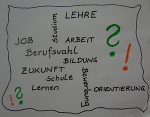 LEHRE
Studium
JOB
ARBEIT
?
Berufswahl
!
BILDUNG
ZUKUNFT
Schule
Bewerbung
?
!
Lernen
ORIENTIERUNG